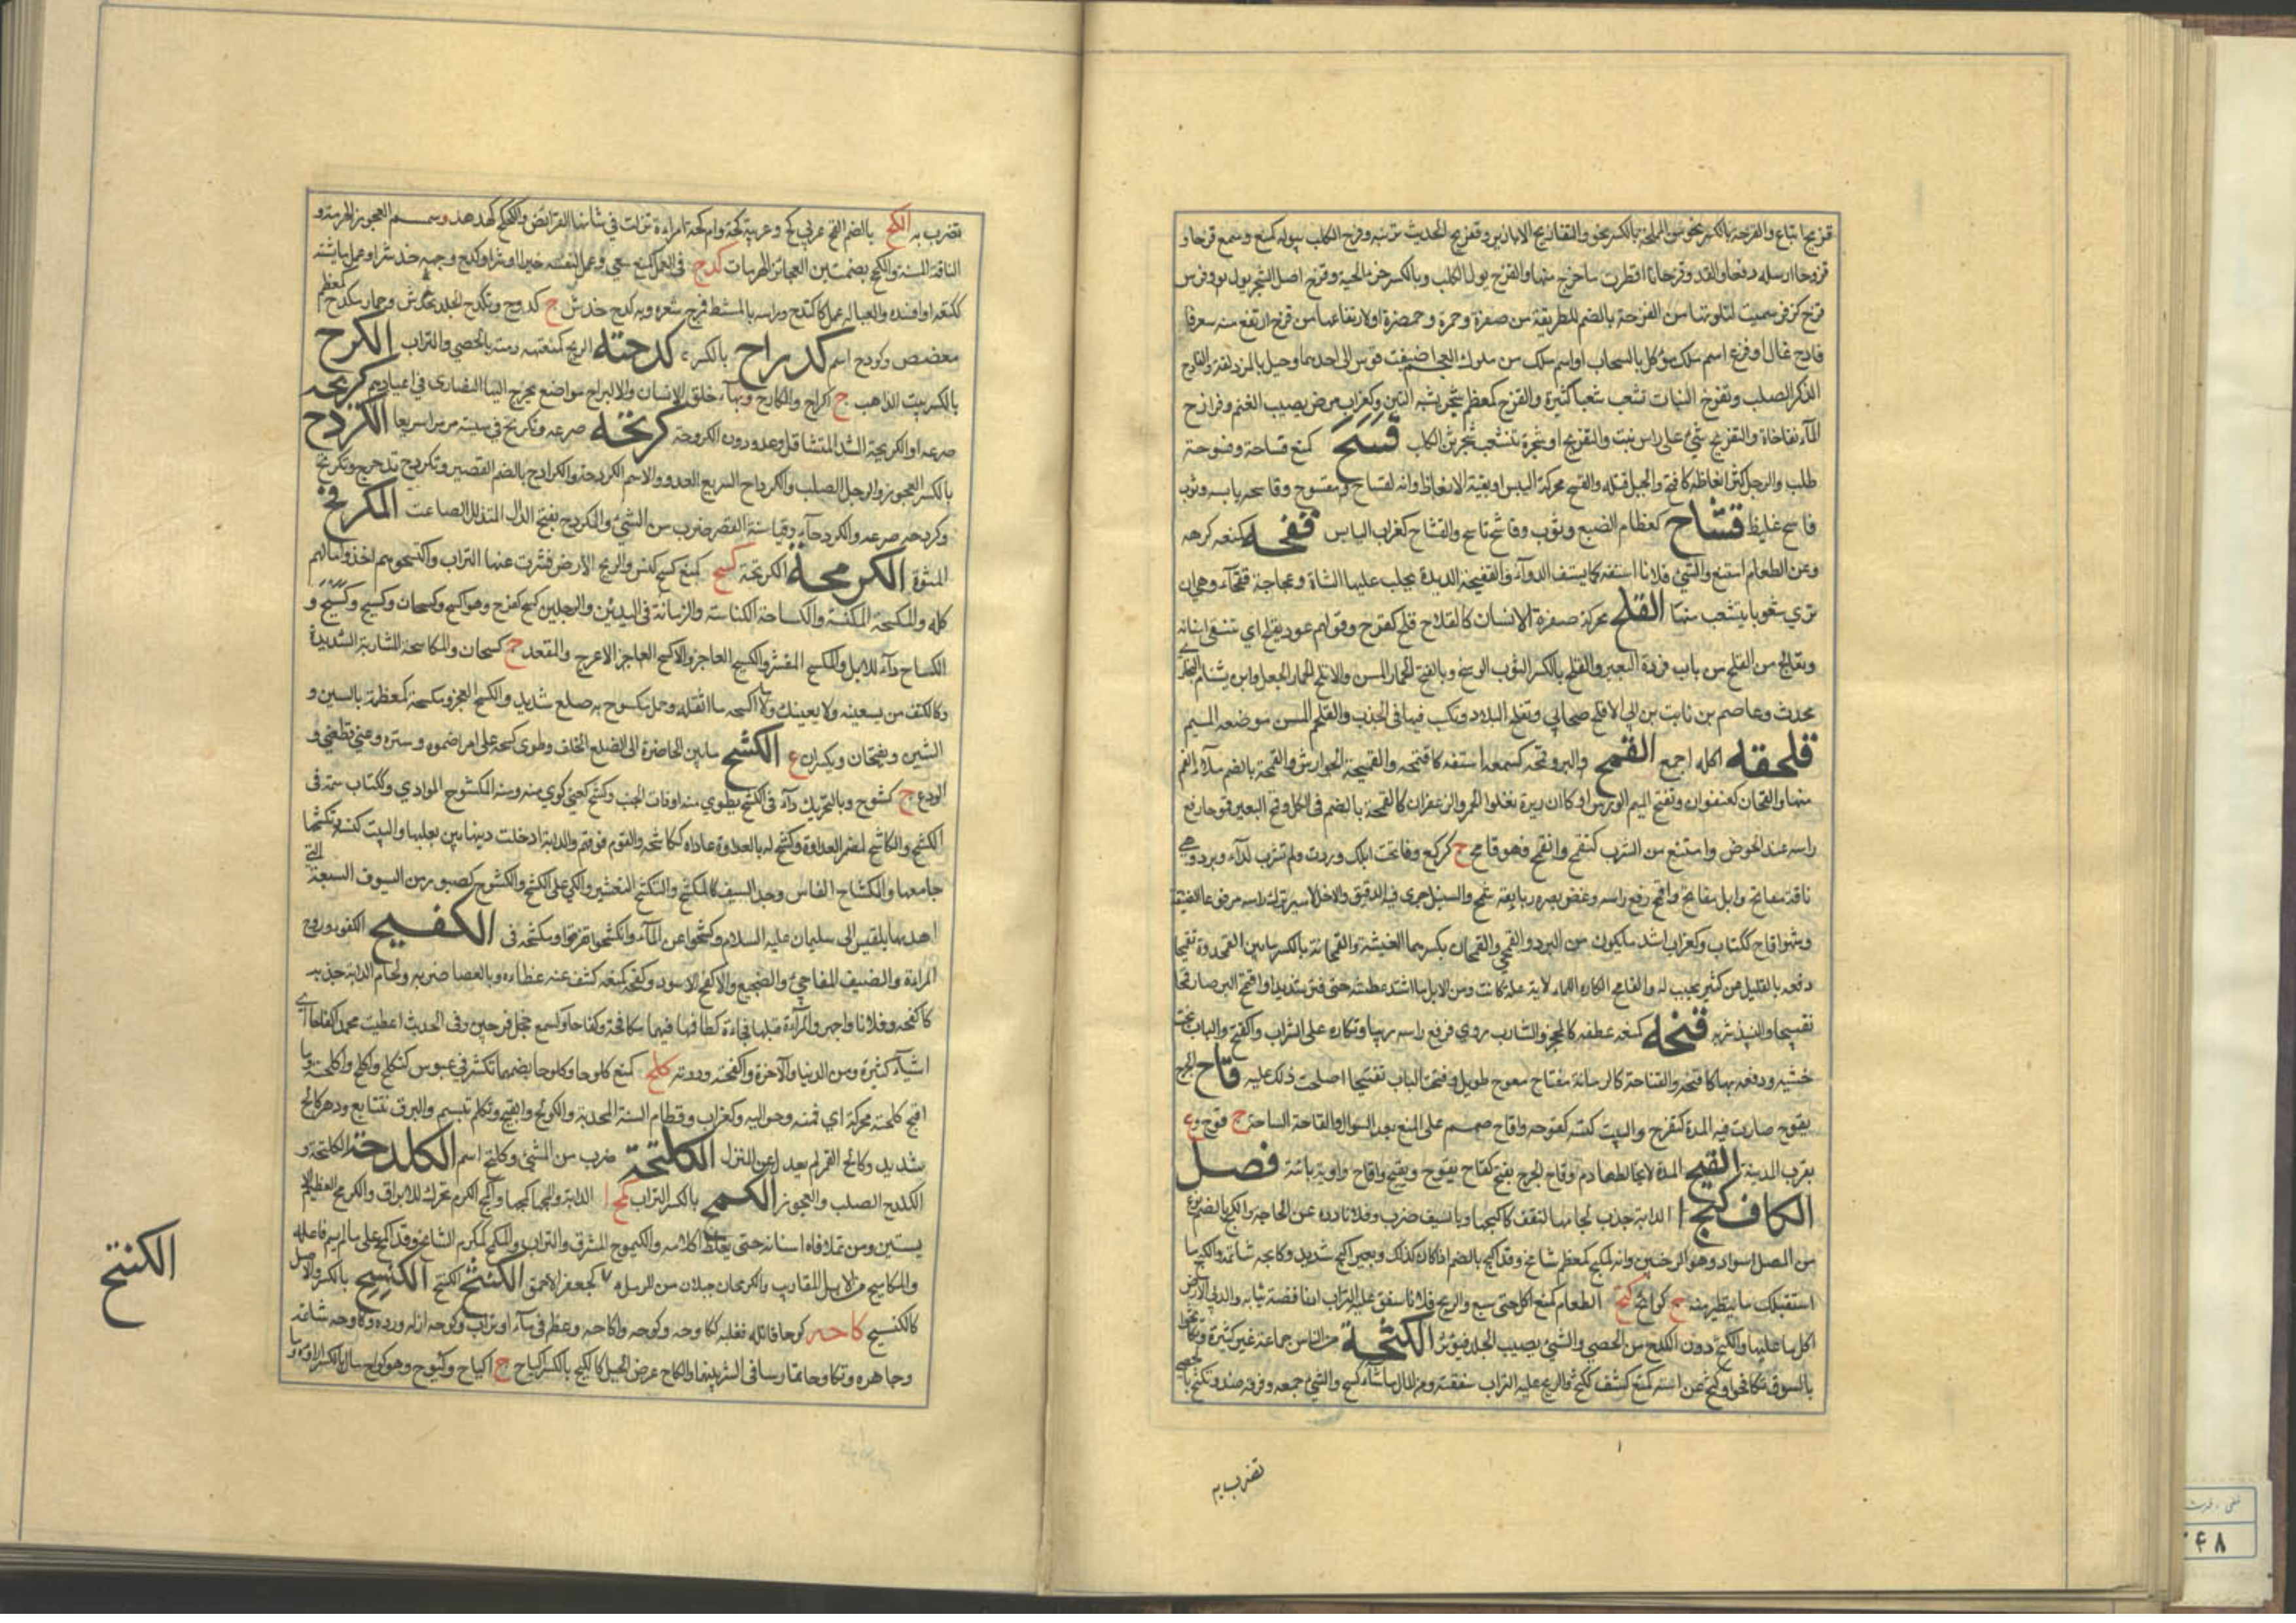 قزيح اتباع والقزحة بالكسر نحو من المملحة بالكسر نحو والتقازيح الابازير وقزح الحديث تزيينه وقزح الكلب ببوله كمنع وسمع قزحا و
قزوحا ارسله دفعا والقدر قزحانا اقطرت ما خرج منها والقزح بول الكلب وبالكسر خرء الحية وقزح اصل الشجر بوله وقوس
قزح كزفر سميت لتلونها من القزحة بالضم للطريقة من صفرة وحمرة وخضرة او لارتفاعها من قزح ارتفع ومنه سعر
قازح غال او قزح اسم ملك موكل بالسحاب او اسم ملك من ملوك العجم اضيفت قوس الى احدهما وجبل بالمزدلفة والقازح
الذكر الصلب وتقزح النبات تشعب شعبا كثيرة والمقزح كمعظم شجر يشبه التين وكغراب مرض يصيب الغنم وقوازح
الماء نفاخاته والتقزيح شيء على راس نبت او شجرة يتشعب كبرثن الكلب قسح كمنع قساحة وقسوحة
صلب والرجل كثر انعاظه كاقسح والحبل فتله والقسح محركة اليبس او بقية الانعاظ وانه لقساح مقسوح وقاسحه يابسه وثوب
قاسح غليظ قشاح كقطام الضبع وثوب وقاشح قاسح والقشاح كغراب اليابس قفحه كمنعه كرهه
وعن الطعام امتنع والشيء فلانا استفه كما يستف الدواء والقفيحة الزبدة يحلب عليها الشاة وعجاجة قفحاء وهي ان
ترى شعوبا يتشعب منها القلح محركة صفرة الانسان كالقلاح قلح كفرح وقولهم عود يقلح اي تنقى اسنانه
ويعالج من القلح من باب قردت البعير والقلح بالكسر الثوب الوسخ وبالفتح الحمار المسن والاقلح الجعل وابن بسام البخاري
محدث وعاصم بن ثابت بن ابي الاقلح صحابي وتقلح البلاد تكسب فيها في الجدب والقلحم المسن موضعه الميم
قلحفه اكله اجمع القمح والبر وقمحه كسمعه استفه كاقتمحه والقميحة الجوارش والقمحة بالضم ملء الفم
منها والقمحان كعنفوان وتفتح الميم الورس او كالذريرة يعلو الخمر والزعفران كالقمحة بالضم في الكل وقمح البعير قموحا رفع
راسه عند الحوض وامتنع من الشرب كتقمح وانقمح فهو قامح ج كركع وقامحت ابلك وردت ولم تشرب لداء او برد وهي
ناقة مقامح وابل مقامحة واقمح رفع راسه وغض بصره وبانفه شمخ والسنبل جرى فيه الدقيق والغل الاسير ترك راسه مرفوعا لضيقه
وشهرا قماح ككتاب وكغراب اشد ما يكون من البرد والقمحى والقمحاة بكسرهما الفيشة والقمحانة بالكسر ما بين القمحدوة تقميحا
دفعه بالقليل من كثير يجب له والقامح الكاره للماء لاية علة كانت ومن الابل ما اشتد عطشه حتى فتر شديدا واقتمح البر صار قمحا
نضيجا والنبيذ شربه قنحه كمنعه عطفه كالمحجن والشارب روي فرفع راسه ريا وتكاره على الشراب كاقنح والباب نحت
خشبه ودفعه بها كاقنحه والقناحة كالرمانة مفتاح معوج طويل وقنحت الباب تقنيحا اصلحت ذلك عليه قاح الجرح
يقوح صارت فيه المدة كتقوح والبيت كنسه كقوحه واقاح صمم على المنع بعد السؤال والقاحة الساحة ج قوح و ع
بقرب المدينة القيح المدة لا يخالطها دم وقاح الجرح يقيح كقاح يقوح وقيح واقاح واوية يائية فصل
الكاف كبح الدابة جذب لجامها لتقف كاكبحها وبالسيف ضرب وفلانا رده عن الحاجة والكبح بالضم نوع
من المصل اسود وهو الرخبين وانه لمكبح كمعظم شامخ وقد اكبح بالضم اذا كان كذلك وبعير اكبح شديد وكابحه شاتمه والكابح ما
استقبلك مما يتطير منه ج كوابح كتح الطعام كمنع اكل حتى شبع والريح فلانا سفت عليه التراب او نازعته ثيابه والدبى الارض
اكل ما عليها والكتح دون الكدح من الحصى والشيء يصيب الجلد فيؤثر الكثحة من الناس جماعة غير كثيرة وتكاثحوا
بالسيوف تكافحوا وكثح عن استه كمنع كشف ككثح والريح عليه التراب سفته ومن المال ما شاء كسح والشيء جمعه وفرقه ضد وتكثح بالحصى
تضرب به
تضرب به الكح بالضم القح عربي كح وعربية كحة وام كحة امراءة نزلت في شانها الفرائض والكحكح كهدهد وسمسم العجوز الهرمة و
الناقة المسنة والكحح بضمتين العجائز الهرمات كدح في العمل كمنع سعى وعمل لنفسه خيرا او شرا وكد ووجهه خدش او عمل به ما يشينه
ككدحه او افسده والعياله عمل كاكتدح وراسه بالمشط فرج شعره وبه كدح خدش ج كدوح وتكدح الجلد تخدش وحمار مكدح كمعظم
معضض وكودح اسم كدراح بالكسر كدحته الريح كمنعته رمته بالحصى والتراب الكرح
بالكسر بيت الراهب ج اكراح والكارح وبهاء حلق الانسان والاكيراح مواضع يخرج اليها النصارى في اعيادهم كربحه
صرعه او الكربحة الشد المتثاقل وعدو دون الكردحة كرتحه صرعه وتكرتح في مشيته مر سريعا الكردح
بالكسر العجوز والرجل الصلب والكرداح السريع العدو والاسم الكردحة والكرادح بالضم القصير وتكردح تدحرج وتكرتح
وكردحه صرعه والكردحاء من القصر ضرب من المشي والمكردح بفتح الدال المتذلل المتصاغر المكرفح
المشوه الكرمحة الكربحة كسح كمنع كنس والريح الارض قشرت عنها التراب واكتسحوهم اخذوا مالهم
كله والمكسحة المكنسة والكساحة الكناسة والزمانة في اليدين والرجلين كسح كفرح وهو اكسح وكسحان وكسيح و
الكساح داء للابل والمكسح المقشر والكسيح العاجز والاكسح العاجز الاعرج والمقعد ج كسحان والمكاسحة المشاربة الشديدة
وكالكتف من يستعينه ولا يعينك وما اكسحه ما اثقله وجمل مكسوح به ضلع شديد والكسح العجز ومكسحة كمعظمة بالسين و
الشين ويفتحان ويكسران ع الكشح ما بين الخاصرة الى الضلع الخلف وطوى كشحه على الامر اضمره وستره وعني قطعني و
الودع ج كشوح وبالتحريك داء في الكشح يكوى منه او ذات الجنب وكشح كعني كوي منه ومنه المكشوح المرادي وككتاب سمة في
الكشح والكاشح مضمر العداوة وكشح له بالعداوة عاداه ككاشحه والقوم فرقهم والدابة ادخلت ذنبها بين رجليها والبيت كنسه وتكشحها
جامعها والمكشاح الفاس وحد السيف كالمكشح والتكشيح التقشير والكي على الكشح والكشوح كصبور من السيوف السبعة التي
اهدتها بلقيس الى سليمان عليه السلام وكشحوا عن الماء وانكشحوا تفرقوا ومكشحة في الكفيح الكفو وزوج
المراءة والضيف المفاجئ والضجيع والاكفح الاسود وكفحه كمنعه كشف عنه غطاءه وبالعصا ضربه ولجام الدابة جذبه
كاكفحه وفلانا واجهه والمراءة قبلها فجاءة ككافحها فيهما مكافحة وكفاحا وكسمع خجل وجبن وفي الحديث اعطيت محمدا كفاحا اي
اشياء كثيرة من الدنيا والآخرة واكفحته رددته كلح كمنع كلوحا وكلاحا بضمهما تكشر في عبوس كتكلح واكلح واكلحته وما
اقبح كلحته محركة اي فمه وحواليه وكغراب وقطام السنة المجدبة والكولح القبيح وتكلح تبسم والبرق تتابع ودهر كالح
شديد وكالح القمر لم يعدل عن المنزل الكلتحة ضرب من المشي وكلتح اسم الكلدحة الكلتحة و
الكلدح الصلب والعجوز الكلمح بالكسر التراب كمح الدابة والجمها كبحها واكمح الكرم تحرك للايراق والكومح العظيم
يستين ومن تملا فاه اسنانه حتى يغلظ كلامه والكيموح المشرف والتراب والمكمح كمكرم الشامخ وقد اكمح على ما لم يسم فاعله
والمكاميح من الابل المقاريب والكومحان حبلان من الرمل م الكنتح كجعفر الاحمق الكنثح الكنتح الكنسيح بالكسر والاصل
كالكنسح كاحه كوحا قاتله فغلبه ككاوحه وكوحه واكاحه وغطه في ماء او تراب وكوحه اذله ورده وكاوحه شاتمه
وجاهره وتكاوحا تمارسا في الشر بينهما والكاح عرض الجبل كالكيح بالكسر ج اكياح وكيوح وهو كواح مال بالكسر ازاؤه وما
الكنتح
۲۴۸